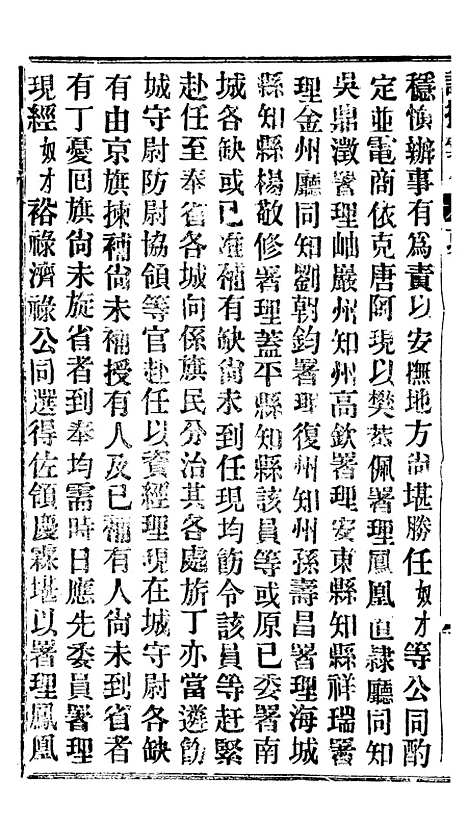 穩愼辦事有爲責以安撫地方尙堪勝任奴才等公同酌
定並電商依克唐阿現以樊蒸佩署理鳳凰直隷廳同知
吳鼎澂署理岫巖州知州高欽署理安東縣知縣祥瑞署
理金州廳同知劉朝鈞署理復州知州孫壽昌署理海城
縣知縣楊敬修署理蓋平縣知縣該員等或原已委署南
城各缺或已准補有缺尙未到任現均飭令該員等赶緊
赴任至奉省各城向係旗民分治其各處旂丁亦當遴飭
城守尉防尉協領等官赴任以資經理現在城守尉各缺
有由京旗揀補尙未補授有人及已補有人尙未到省者
有丁憂回旗尙未旋省者到奉均需時日應先委員署理
現經奴才裕祿濟祿公同選得佐領慶霖堪以署理鳳凰